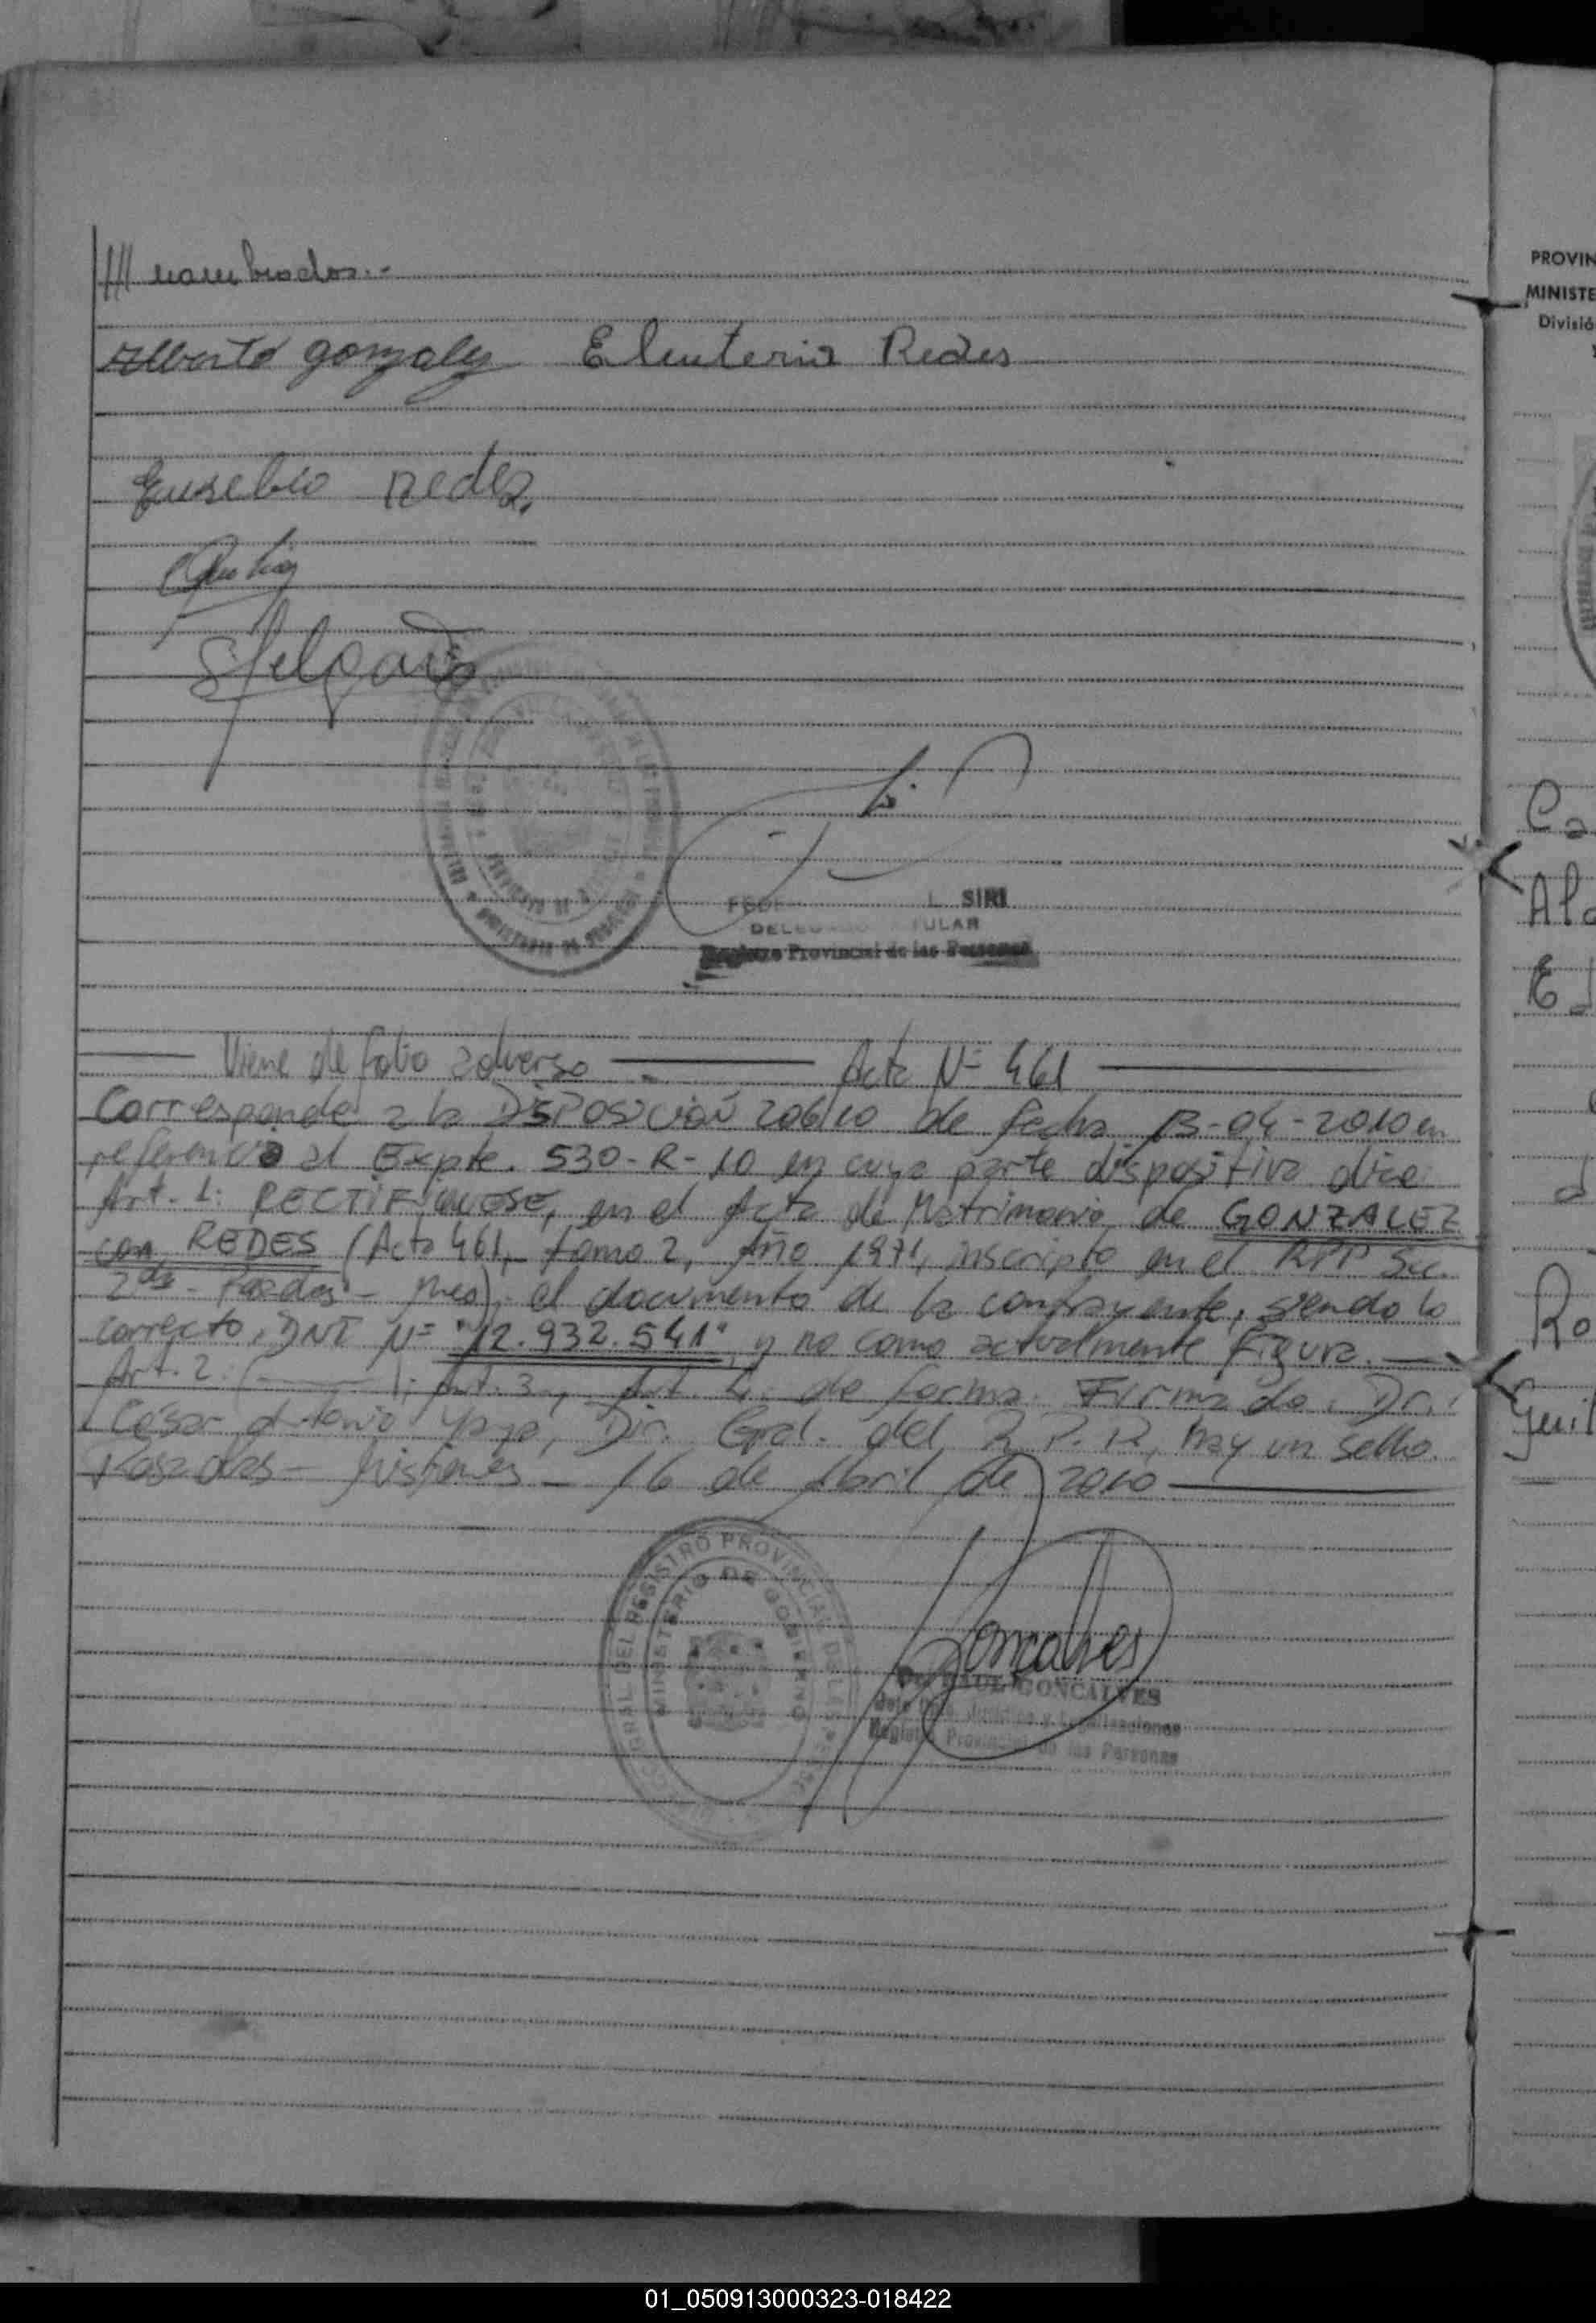 //// nombrados.-
Alberto gonzalez Eleuteria Redes
Eusebio Redez
FEDE L. SIRI
DELEGADO TITULAR
Registro Provincial de las Personas
Viene de folio adverso Acta Nº 461
Corresponde a la DISPOSICIÓN 206/10 de fecha 13-04-2010 en
referencia al Expte. 530-R-10 en cuya parte dispositiva dice
Art. 1: RECTIFIQUESE, en el Acta de Matrimonio de GONZALEZ
con REDES (Acta 461, tomo 2, Año 1971, inscripto en el RPP Sec.
2da - Posadas - Mnes), el documento de la contrayente, siendo lo
correcto, DNI Nº "12.932.541" y no como actualmente Figura.
Art. 2. ( ); Art. 3., Art. 4. de forma. Firmado. Dr.
César Antonio Dir. Gral. del R.P.P, hay un sello.
Posadas - Misiones - 16 de Abril de 2010
REGISTRO PROVINCIAL DE LAS
MINISTERIO DE GOBIERNO
Goncalves
RAUL GONCALVES
Jurídica y Legalizaciones
Registro Provincial de las Personas
PROVIN
MINISTE
Divisió
Ca
Al
Ro
Guil
01_050913000323-018422